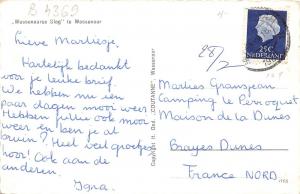 B 4369
„Wassenaarse Slag" te Wassenaar
28/2
NEDERLAND
25 C
Lieve Marliesje.
Hartelijk bedankt
voor je leuke brief
We hebben nu een
paar dagen mooi weer
Hebben jullie ook mooi
weer en ben je al
bruin? Heel veel groetjes
hoor! Ook aan de
anderen.
Copyright It. Dad. „DUTANNE", Wassenaar
Marlies Gransjean
Camping le Perroquet
Maison de la Dunes
Brayes Dunes
France NORD.